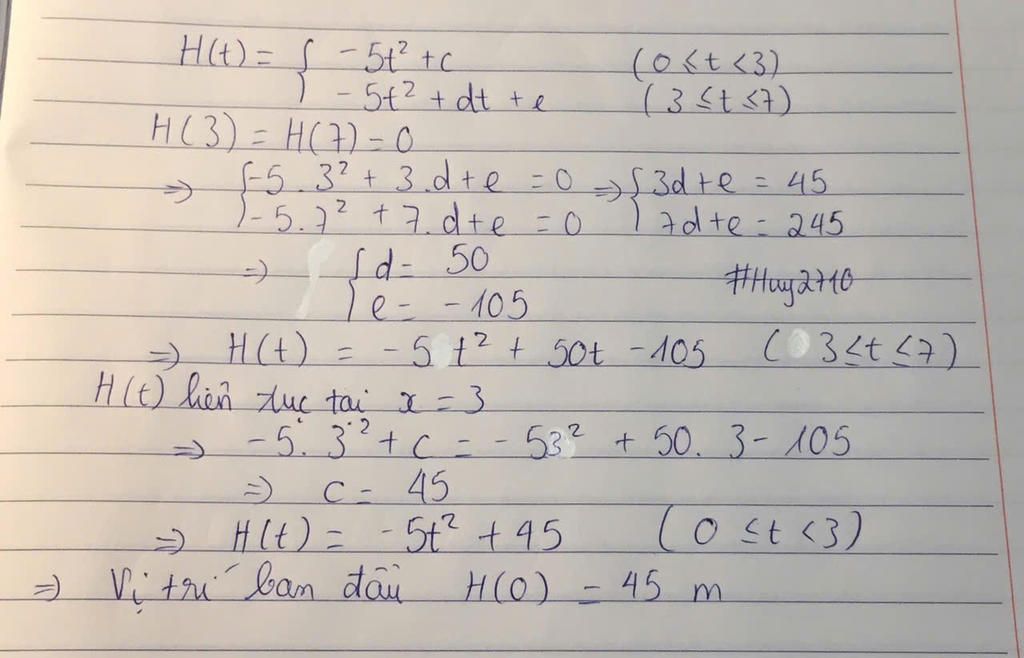 H(t) = { -5t² + c (0 ≤ t < 3)
-5t² + dt + e (3 ≤ t ≤ 7)
H(3) = H(7) = 0
=> { -5.3² + 3.d + e = 0 => { 3d + e = 45
-5.7² + 7.d + e = 0 7d + e = 245
=> { d = 50
e = -105 #Huy2710
=> H(t) = -5t² + 50t - 105 (3 ≤ t ≤ 7)
H(t) liên tục tại x = 3
=> -5.3² + c = -53² + 50.3 - 105
=> c = 45
=> H(t) = -5t² + 45 (0 ≤ t < 3)
=> Vị trí ban đầu H(0) = 45 m